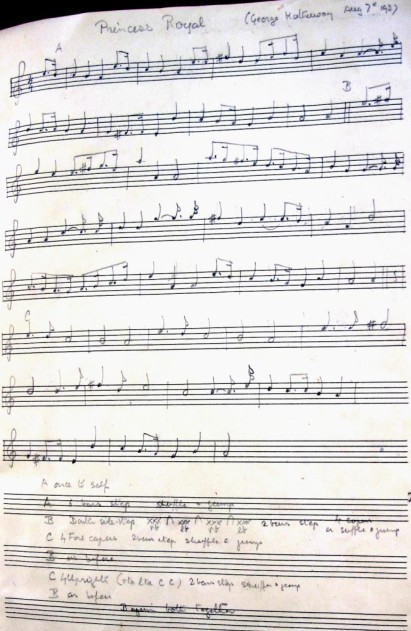 Princess Royal (George Mathewson Aug 7th 1927)
A
B
C
A once to self
A 6 bars step shuffle + jump
B Double side-step xxx ∩ xxx ∩ xxx ∩ xxx 2 bars step 4 capers
or shuffle + jump
C 4 Fore capers 2 bars step shuffle & jump
B as before
C 4 Uprights 2 bars step shuffle + jump
B as before
both together